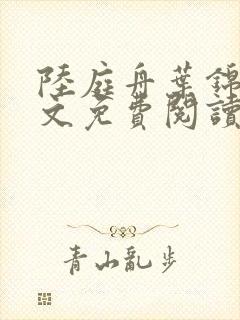 陸庭舟葉錦
文免費閱讀
青山亂步